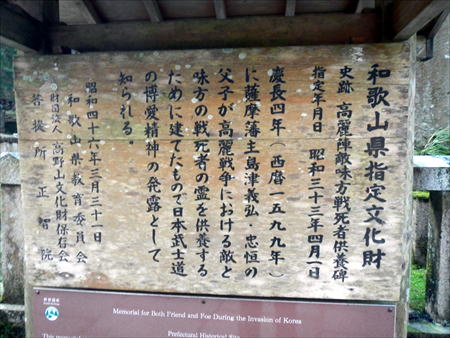 和歌山県指定文化財
史跡 高麗陣敵味方戦死者供養碑
指定年月日 昭和三十三年四月一日
慶長四年（西暦一五九九年）
に薩摩藩主島津義弘・忠恒の
父子が高麗戦争における敵と
味方の戦死者の霊を供養する
ために建てたもので日本武士道
の博愛精神の発露として
知られる。
昭和四十六年三月三十一日
和歌山県教育委員会
財団法人 高野山文化財保存会
菩提所 正智院
Memorial for Both Friend and Foe During the Invasion of Korea
Prefectural Historical Site